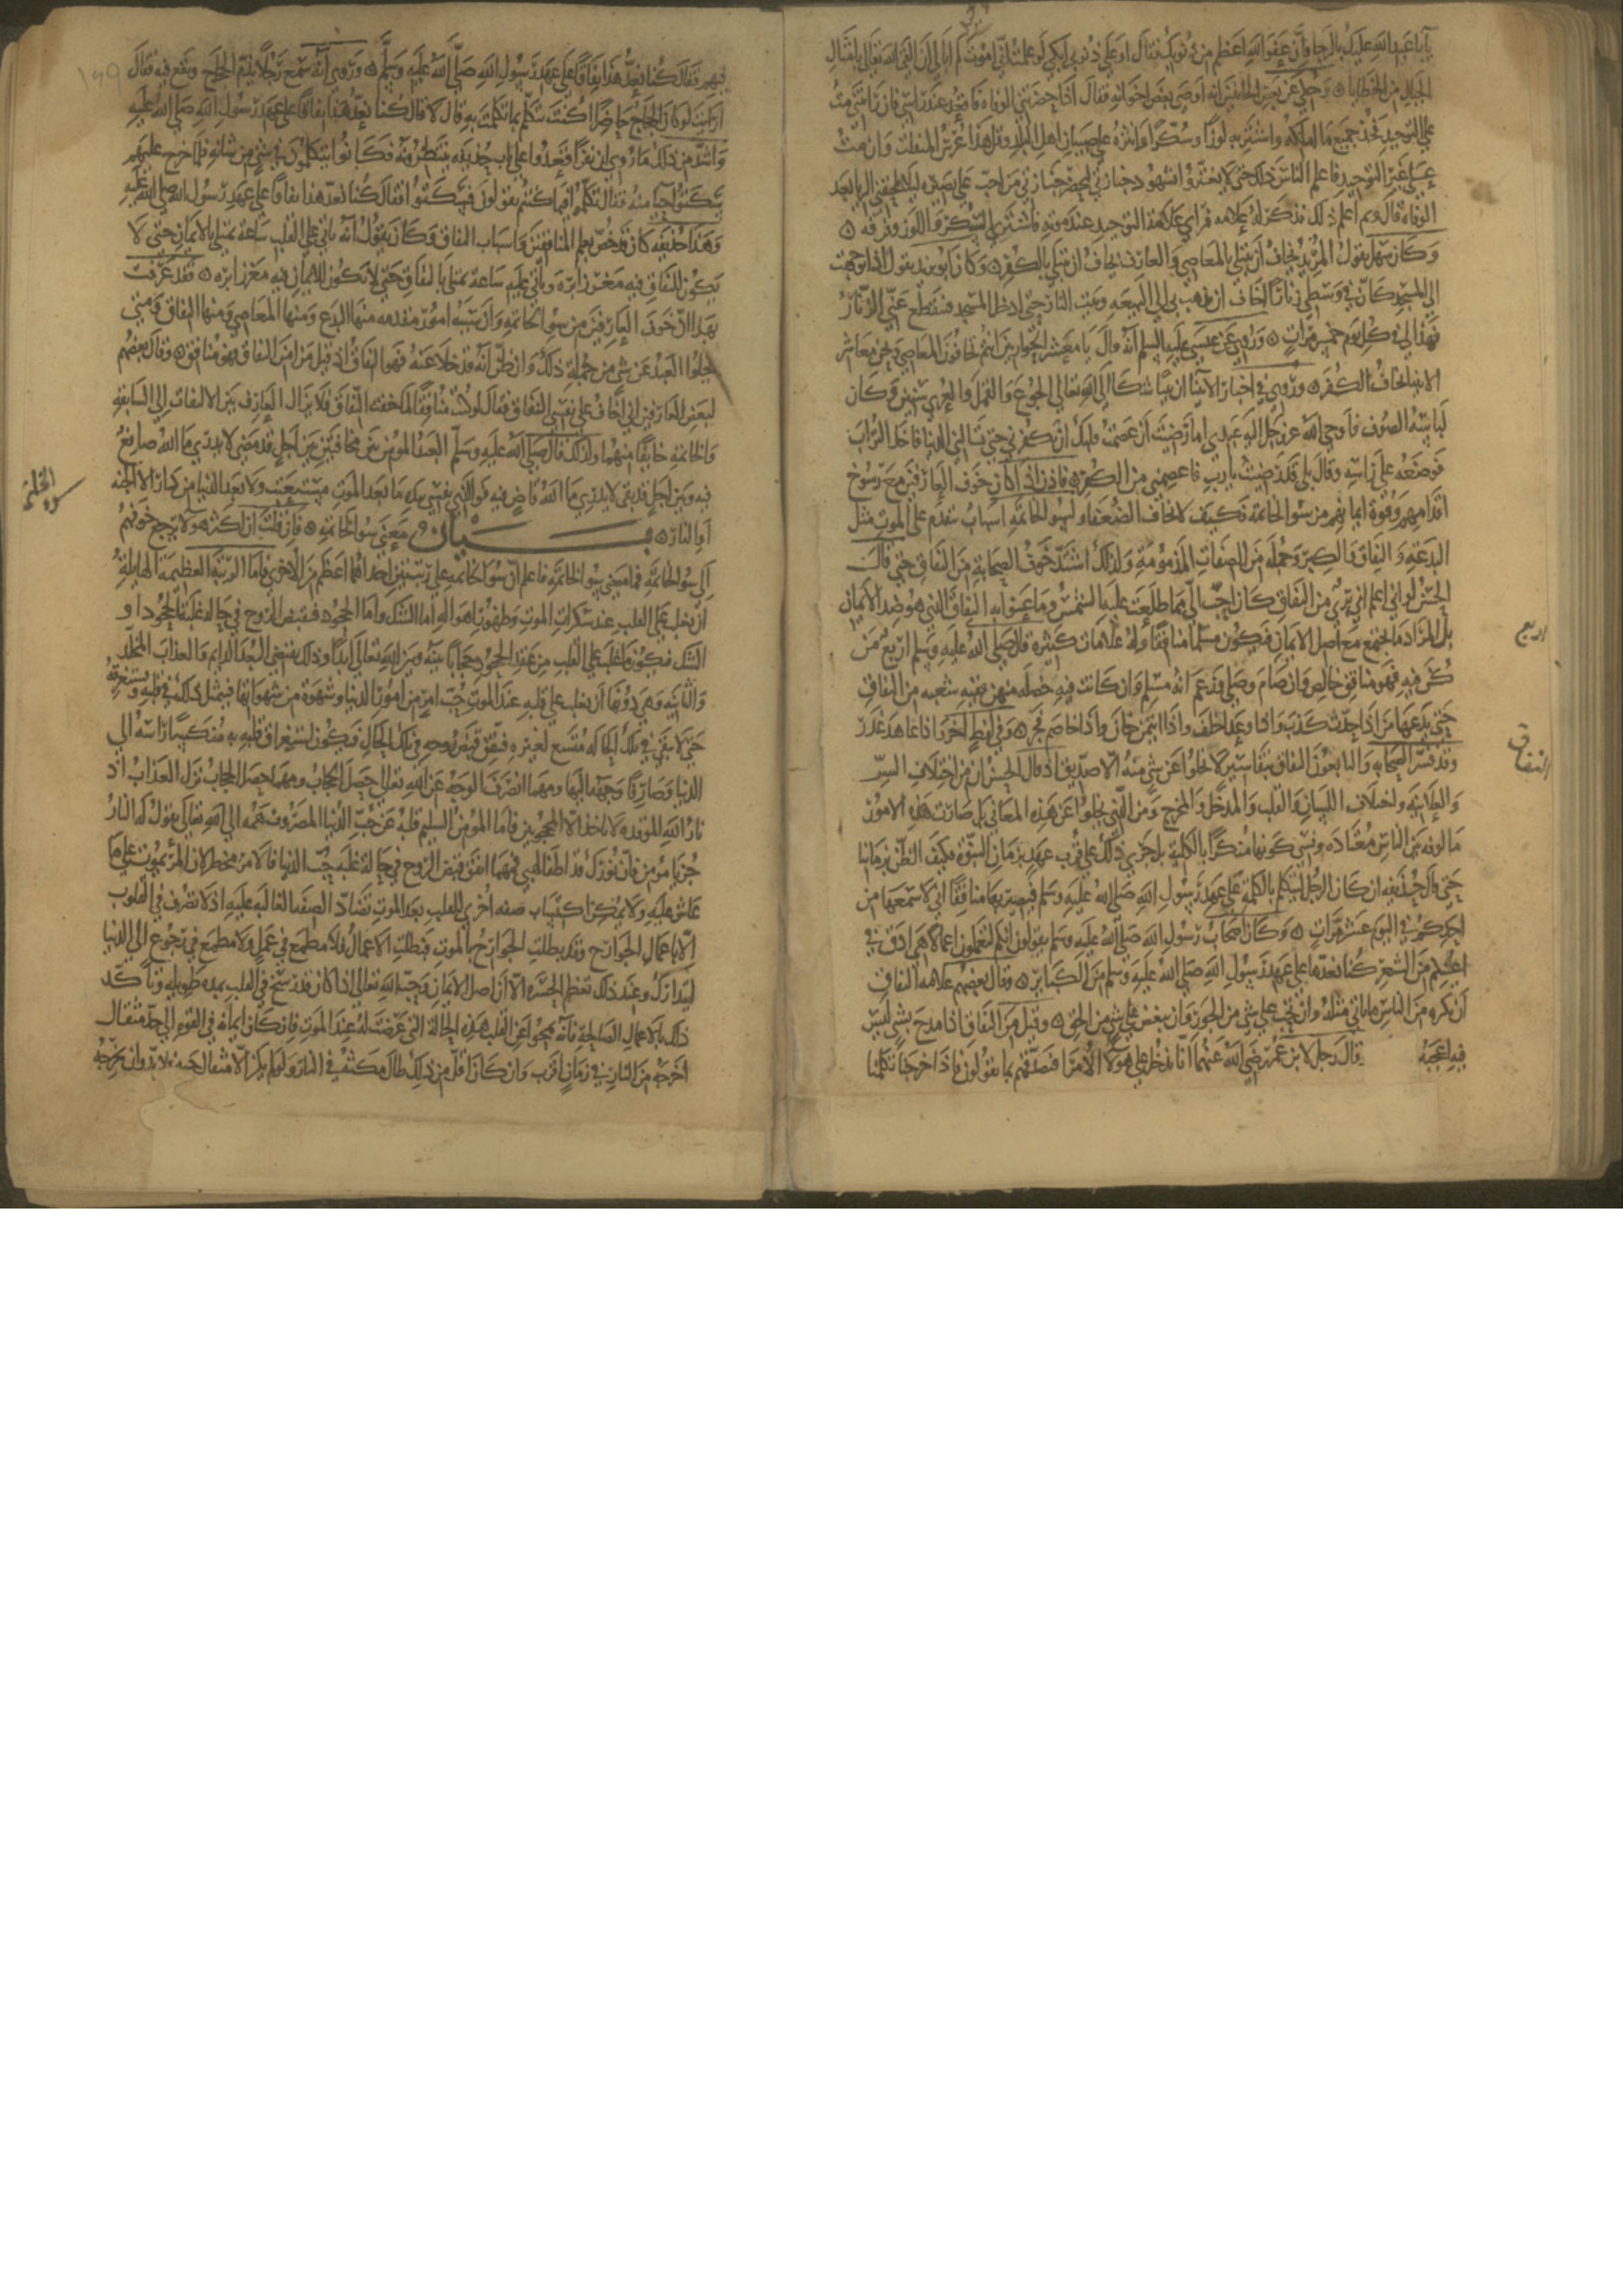 يا با عبد الله عليك بالرجا فان عفو الله اعظم من ذنوبك فقال اوعلي ذنوبي ابكي لو علمت اني اموت لم ابال ان القى الله تعالى بامثال
الجبال من الخطايا ٥ وحكي عن بعض الخائفين انه اوصى بعض اخوانه فقال اذا حضرتني الوفاة فاقعد عند راسي فان رايتني مت
على التوحيد فخذ جميع ما املكه واشتر به لوزا وسكرا وانثره على صبيان اهل البلد وقل هذا عرس المنفلت وان مت
على غير التوحيد فاعلم الناس ذلك حتى لا يغتروا بشهود جنازتي ليحضر جنازتي من احب على بصيرة ليلا يلحقني الريا بعد
الوفاة قال وبم اعلم ذلك فذكر له علامة فراى علامة التوحيد عند موته فاشترى السكر واللوز وفرقه ٥
وكان سهل يقول المريد يخاف ان يبتلى بالمعاصي والعارف يخاف ان يبتلى بالكفر ٥ وكان ابو يزيد يقول اذا توجهت
الى المسجد كان في وسطي زنارا اخاف ان يذهب بي الى البيعة وبيت النار حتى ادخل المسجد فينقطع عني الزنار
فهذا لي في كل يوم خمس مرات ٥ وروي عن عيسى عليه السلم انه قال يا معشر الحواريين انتم تخافون المعاصي ونحن معاشر
الانبيا نخاف الكفر ٥ وروي في اخبار الانبيا ان نبيا شكا الى الله تعالى الجوع والقمل والعري سنين وكان
لباسه الصوف فاوحى الله عز وجل اليه عبدي اما رضيت ان عصمت قلبك ان تكفر بي حتى تسالني الدنيا فاخذ التراب
فوضعه على راسه وقال بلى قد رضيت يا رب فاعصمني من الكفر ٥ فاذن اذا كان خوف العارفين مع رسوخ
اقدامهم وقوة ايمانهم من سوء الخاتمة فكيف لا يخاف الضعفاء ولسوء الخاتمة اسباب تتقدم على الموت مثل
البدعة والنفاق والكبر وجملة من الصفات المذمومة ولذلك اشتد خوف الصحابة من النفاق حتى قال
الحسن لو اني اعلم اني بري من النفاق كان احب الي مما طلعت عليه الشمس وما عنوا به النفاق الذي هو ضد الايمان
بل المراد ما يجتمع مع اصل الايمان فيكون مسلما منافقا وله علامات كثيرة قال صلى الله عليه وسلم اربع من
كن فيه فهو منافق خالص وان صام وصلى وزعم انه مسلم وان كانت فيه خصلة منهن ففيه شعبة من النفاق
حتى يدعها من اذا حدث كذب واذا وعد اخلف واذا ائتمن خان واذا خاصم فجر ٥ وفي لفظ اخر اذا عاهد غدر
وقد فسر الصحابة والتابعون النفاق بتفاسير لا يخلوا عن شي منه الا صديق اذ قال الحسن ان من اختلاف السر
والعلانية واختلاف اللسان والقلب والمدخل والمخرج ومن الذي يخلوا عن هذه المعاني بل صارت هذه الامور
مالوفة بين الناس معتادة ونسي كونها منكرا بالكلية بل جرى ذلك على قرب عهد بزمان النبوة فكيف الظن بزماننا
حتى قال حذيفة ان كان الرجل ليتكلم بالكلمة على عهد رسول الله صلى الله عليه وسلم فيصير بها منافقا اني لاسمعها من
احدكم في اليوم عشر مرات ٥ وكان اصحاب رسول الله صلى الله عليه وسلم يقولون انكم لتعملون اعمالا هي ادق في
اعينكم من الشعر كنا نعدها على عهد رسول الله صلى الله عليه وسلم من الكبائر ٥ وقال بعضهم علامة النفاق
ان تكره من الناس ما تاتي مثله وان تحب على شي من الجور وان تبغض على شي من الحق ٥ وقيل من النفاق اذا مدح بشي ليس
فيه اعجبه قال رجل لابن عمر رضي الله عنهما انا ندخل على هولا الامرا فنصدقهم بما يقولون فاذا خرجنا تكلمنا
اربع
النفاق
فيهم فقال كنا نعد هذا نفاقا على عهد رسول الله صلى الله عليه وسلم ٥ وروي انه سمع رجلا يذم الحجاج ويقع فيه فقال
ارايت لو كان الحجاج حاضرا اكنت تتكلم بما تكلمت به قال لا قال كنا نعد هذا نفاقا على عهد رسول الله صلى الله عليه
واشد من ذلك ما روي ان نفرا قعدوا على باب حذيفة ينتظرونه فكانوا يتكلمون في شي من شانه فلما خرج عليهم
سكتوا حيا منه فقال تكلموا فيما كنتم تقولون فسكتوا فقال كنا نعد هذا نفاقا على عهد رسول الله صلى الله عليه
وهذا حذيفة كان قد خص بعلم المنافقين واسباب النفاق وكان يقول انه ياتي على القلب ساعة يمتلي بالايمان حتى لا
يكون للنفاق فيه مغرز ابرة وياتي عليه ساعة يمتلي بالنفاق حتى لا يكون للايمان فيه مغرز ابرة ٥ فقد عرفت
بهذا ان خوف العارفين من سوء الخاتمة وان سببه امور تتقدمه منها البدع ومنها المعاصي ومنها النفاق ومتى
يخلوا العبد عن شي من جملة ذلك وان ظن انه قد خلا عنه فهو النفاق اذ قيل من امن النفاق فهو منافق ٥ وقال بعضهم
لبعض العارفين اني اخاف على نفسي النفاق فقال لو كنت منافقا لما خفت النفاق فلا يزال العارف بين الالتفات الى السابقة
والخاتمة خايفا منهما ولذلك قال صلى الله عليه وسلم العبد المومن بين مخافتين بين اجل قد مضى لا يدري ما الله صانع
فيه وبين اجل قد بقي لا يدري ما الله قاض فيه فو الذي نفسي بيده ما بعد الموت مستعتب ولا بعد الدنيا من دار الا الجنة
او النار ٥ بيان معنى سوء الخاتمة ٥ فان قلت ان اكثر هولا يرجع خوفهم
الى سوء الخاتمة فما معنى سوء الخاتمة فاعلم ان سوء الخاتمة على رتبتين احداهما اعظم من الاخرى فاما الرتبة العظيمة الهايلة
ان يغلب على القلب عند سكرات الموت وظهور اهواله اما الشك واما الجحود فتقبض الروح في حالة غلبة الجحود او
الشك فيكون ما غلب على القلب من عقد الجحود حجابا بينه وبين الله تعالى ابدا وذلك يقتضي البعد الدايم والعذاب المخلد
والثانية وهي دونها ان يغلب على قلبه عند الموت حب امر من امور الدنيا وشهوة من شهواتها فيتمثل ذلك في قلبه ويستغرقه
حتى لا يبقى في تلك الحالة متسع لغيره فيتفق قبض روحه في تلك الحال فيكون استغراق قلبه به منكسا راسه الى
الدنيا وصارفا وجهه اليها ومهما انصرف الوجه عن الله تعالى حصل الحجاب ومهما حصل الحجاب نزل العذاب اذ
نار الله الموقدة لا تاخذ الا المحجوبين فاما المومن السليم قلبه عن حب الدنيا المصروف همه الى الله تعالى يقول له النار
جز يا مومن فان نورك قد اطفا لهبي فمهما اتفق قبض الروح في حالة غلبة حب الدنيا فالامر مخطر لان المرء يموت على ما
عاش عليه ولا يمكن اكتساب صفة اخرى للقلب بعد الموت تضاد الصفة الغالبة عليه اذ لا تصرف في القلوب
الا باعمال الجوارح وقد بطلت الجوارح بالموت فبطلت الاعمال فلا مطمع في عمل ولا مطمع في رجوع الى الدنيا
ليتدارك وعند ذلك تعظم الحسرة الا ان اصل الايمان وحب الله تعالى اذا كان قد رسخ في القلب مدة طويلة وتاكد
ذلك بالاعمال الصالحة فانه يمحوا عن القلب هذه الحالة التي عرضت له عند الموت فان كان ايمانه في القوة الى حد مثقال
اخرجه من النار في زمان اقرب وان كان اقل من ذلك طال مكثه في النار ولو لم يكن الا مثقال حبة فلا بد وان يخرجه
سوء الخاتمة
١٤٩